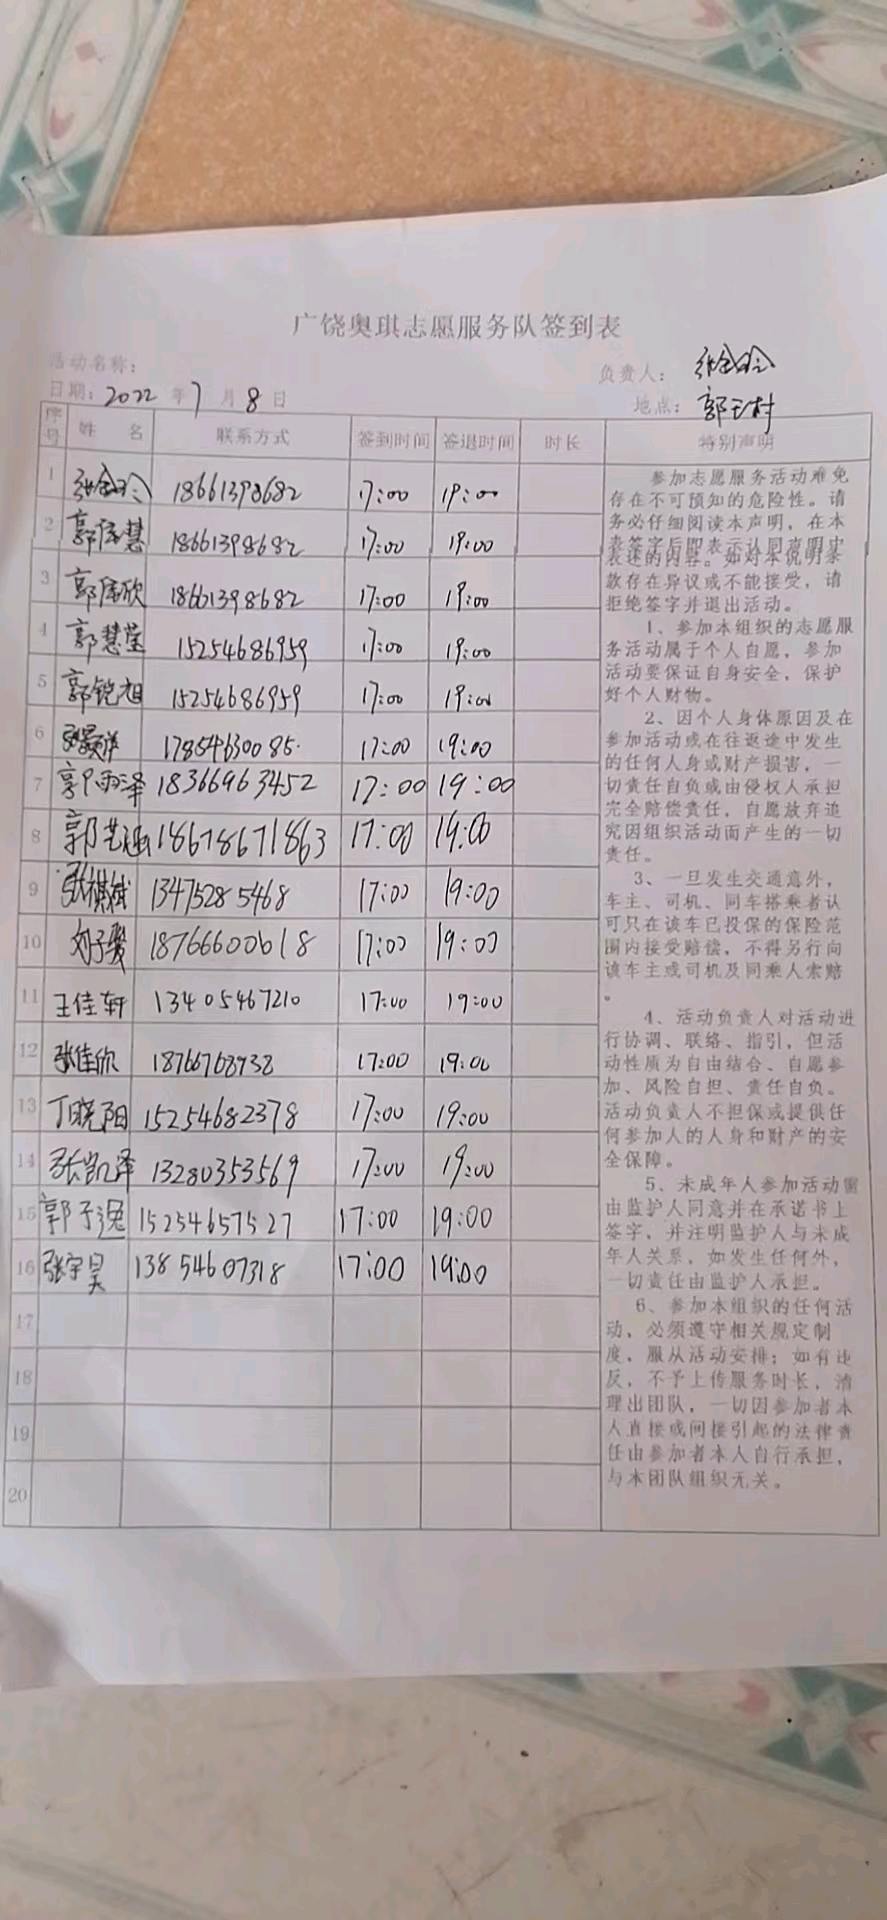 广饶奥琪志愿服务队签到表
活动名称：
负责人： 张金玲
日期：2022 年 7 月 8 日
地点： 郭王村
序号 姓 名 联系方式 签到时间 签退时间 时长 特别声明
1 张金玲 18661398682 17:00 19:00
2 郭 慧 18661398682 17:00 19:00
3 郭 欣 18661398682 17:00 19:00
4 郭慧莹 15254686959 17:00 19:00
5 郭锐旭 15254686959 17:00 19:00
6 张 17854630085. 17:00 19:00
7 郭雨泽 18366963452 17:00 19:00
8 郭艺涵 18678671863 17:00 19:00
9 张祺斌 13475285468 17:00 19:00
10 刘子 18766600618 17:00 19:00
11 王佳轩 13405467210 17:00 19:00
12 张佳欣 17:00 19:00
13 丁晓阳 15254682378 17:00 19:00
14 张凯泽 13280353569 17:00 19:00
15 郭子逸 15254657527 17:00 19:00
16 张宇昊 13854607318 17:00 19:00
17
18
19
20
参加志愿服务活动难免
存在不可预知的危险性。请
务必仔细阅读本声明，在本
表签字后即表示认同声明中
表述的内容。如对本说明条
款存在异议或不能接受，请
拒绝签字并退出活动。
1、参加本组织的志愿服
务活动属于个人自愿，参加
活动要保证自身安全，保护
好个人财物。
2、因个人身体原因及在
参加活动或在往返途中发生
的任何人身或财产损害，一
切责任自负或由侵权人承担
完全赔偿责任，自愿放弃追
究因组织活动而产生的一切
责任。
3、一旦发生交通意外，
车主、司机、同车搭乘者认
可只在该车已投保的保险范
围内接受赔偿，不得另行向
该车主或司机及同乘人索赔
。
4、活动负责人对活动进
行协调、联络、指引，但活
动性质为自由结合、自愿参
加、风险自担、责任自负。
活动负责人不担保或提供任
何参加人的人身和财产的安
全保障。
5、未成年人参加活动需
由监护人同意并在承诺书上
签字，并注明监护人与未成
年人关系，如发生任何外，
一切责任由监护人承担。
6、参加本组织的任何活
动，必须遵守相关规定制
度，服从活动安排；如有违
反，不予上传服务时长，清
理出团队，一切因参加者本
人直接或间接引起的法律责
任由参加者本人自行承担，
与本团队组织无关。